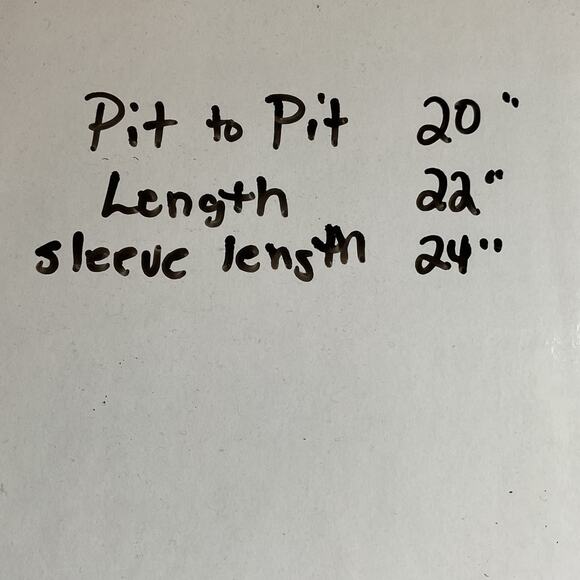 Pit to Pit 20"
Length 22"
sleeve length 24"